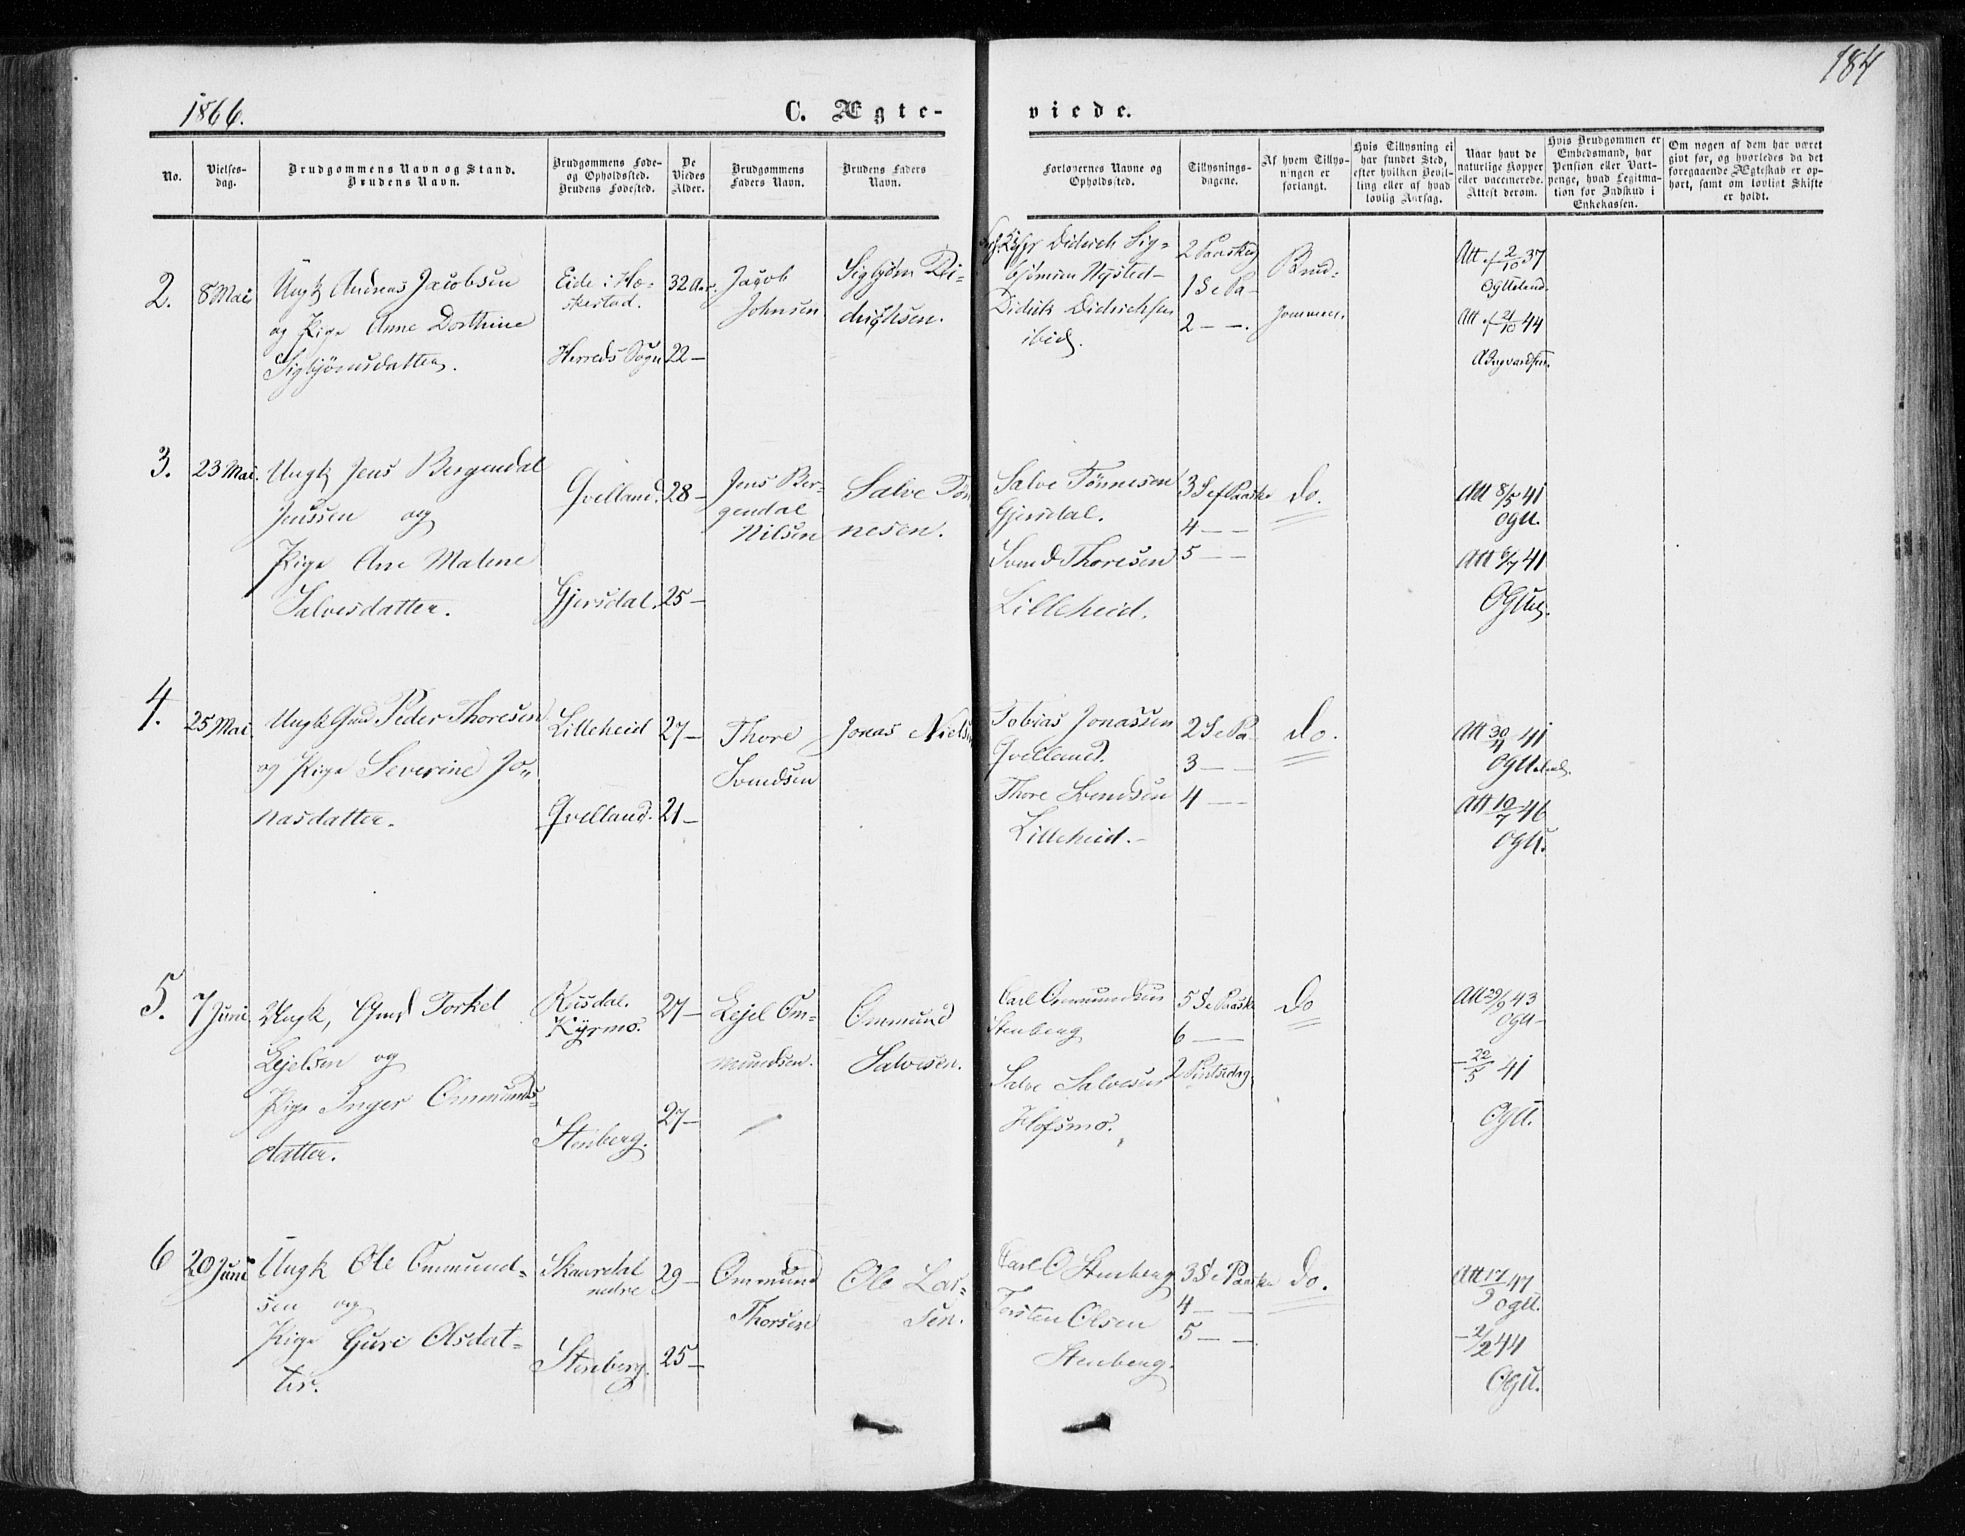 184
1866.
C. Ægte-
viede.
No.
Vielses-
dag.
Brudgommens Navn og Stand.
Brudens Navn.
Brudgommens Føde-
og Opholdssted.
Brudens Fødested.
De
Viedes
Alder.
Brudgommens
Faders Navn.
Brudens Faders
Navn.
Forlovernes Navne og
Opholdssted.
Tillysnings-
dagene.
Af hvem Tillys-
ningen er
forlangt.
Hvis Tillysning ei
har fundet Sted,
efter hvilken Bevil-
ling eller af hvad
lovlig Aarsag.
Naar havt de
naturlige Kopper
eller vaccinerede.
Attest derom.
Hvis Brudgommen er
Embedsmand, har
Pension eller Vart-
penge, hvad Legitima-
tion for Indskud i
Enkekassen.
Om nogen af dem har været
gift før, og hvorledes da det
foregaaende Ægteskab er op-
hørt, samt om lovligt Skifte
er holdt.
2.
8 Mai
Ungk Andreas Jacobsen
og Pige Anne Dorthine
Sigbjørnsdatter.
Eide i Hø-
skestad.
Herreds Sogn
32 Aar.
22 –
Jacob
Johnsen
Sigbjørn Di-
drichsen.
Didrich Sig-
bjørnsen Nysted
Didrik Didrichsen
ibid.
2 Paaskeg
1 S e Pa-
2 – –.
Brud-
gommen.
Att. 2/10 37
Ogtteland.
Att. 21/10 44
AIngvardsen.
3.
23 Mai.
Ungk Jens Bergendal
Jenssen og
Pige Ane Malene
Salvesdatter.
Qvelland.
Gjersdal.
28 –
25 –
Jens Ber-
gendal
Nilsen
Salve Tøn
nesen.
Salve Tønnesen
Gjersdal.
Svend Thoresen
Lilleheid.
3 S ef Paaske
4 – –
5 – –
Do.
Att 8/5 41
Ogtt.
Att 6/7 41
Ogttd.
4.
25 Mai
Ungk Gmd Peder Thoresen
og Pige Severine Jo-
nasdatter.
Lilleheid
Qvelland.
27 –
21 –
Thore
Svendsen
Jonas Niels
Tobias Jonassen
Qvelland.
Thore Svendsen
Lilleheid. –
2 S e Pa-
3 – –
4 – –
Do.
Att 30/4 41
Ogtteland.
Att 10/7 46
Ogtt.
5.
7 Juni.
Ungk, Gmd Torkel
Lejelsen og
Pige Inger Ommunds-
datter.
Kyrmo.
Stenberg.
27 –
27 –
Lejel Om-
mundsen.
Ommund
Salvesen.
Carl Ommundsen
Stenberg
Salve Salvesen
Hofsmo.
5 S e Paaske
6 – –
2 Pintsedag.
Do
Att 29/9 43
Ogtt –
– 22/5 41
Ogtt.
6
20 Juni
Ungk Ole Ommund-
sen og
Pige Guri Olsdat-
ter.
Skaardal
nedre
Stenberg.
29 –
25 –
Ommund
Thorsen
Ole Lar-
sen.
Carl O Stenberg
Torsten Olsen
Stenberg.
3 S e Paaske
4 – –
5 – –
Do.
Att 17/9 47
Ogtt.
– 2/2 44
Ogtt.